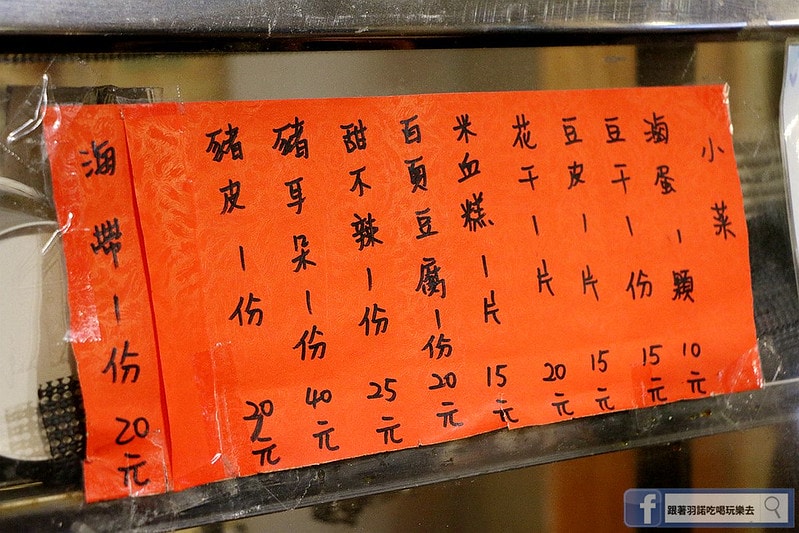 小菜
滷蛋1顆10元
豆干1份15元
豆皮1片15元
花干1片20元
米血糕1片15元
百頁豆腐1份20元
甜不辣1份25元
豬耳朵1份40元
豬皮1份20元
海帶1份20元
跟著羽諾吃喝玩樂去